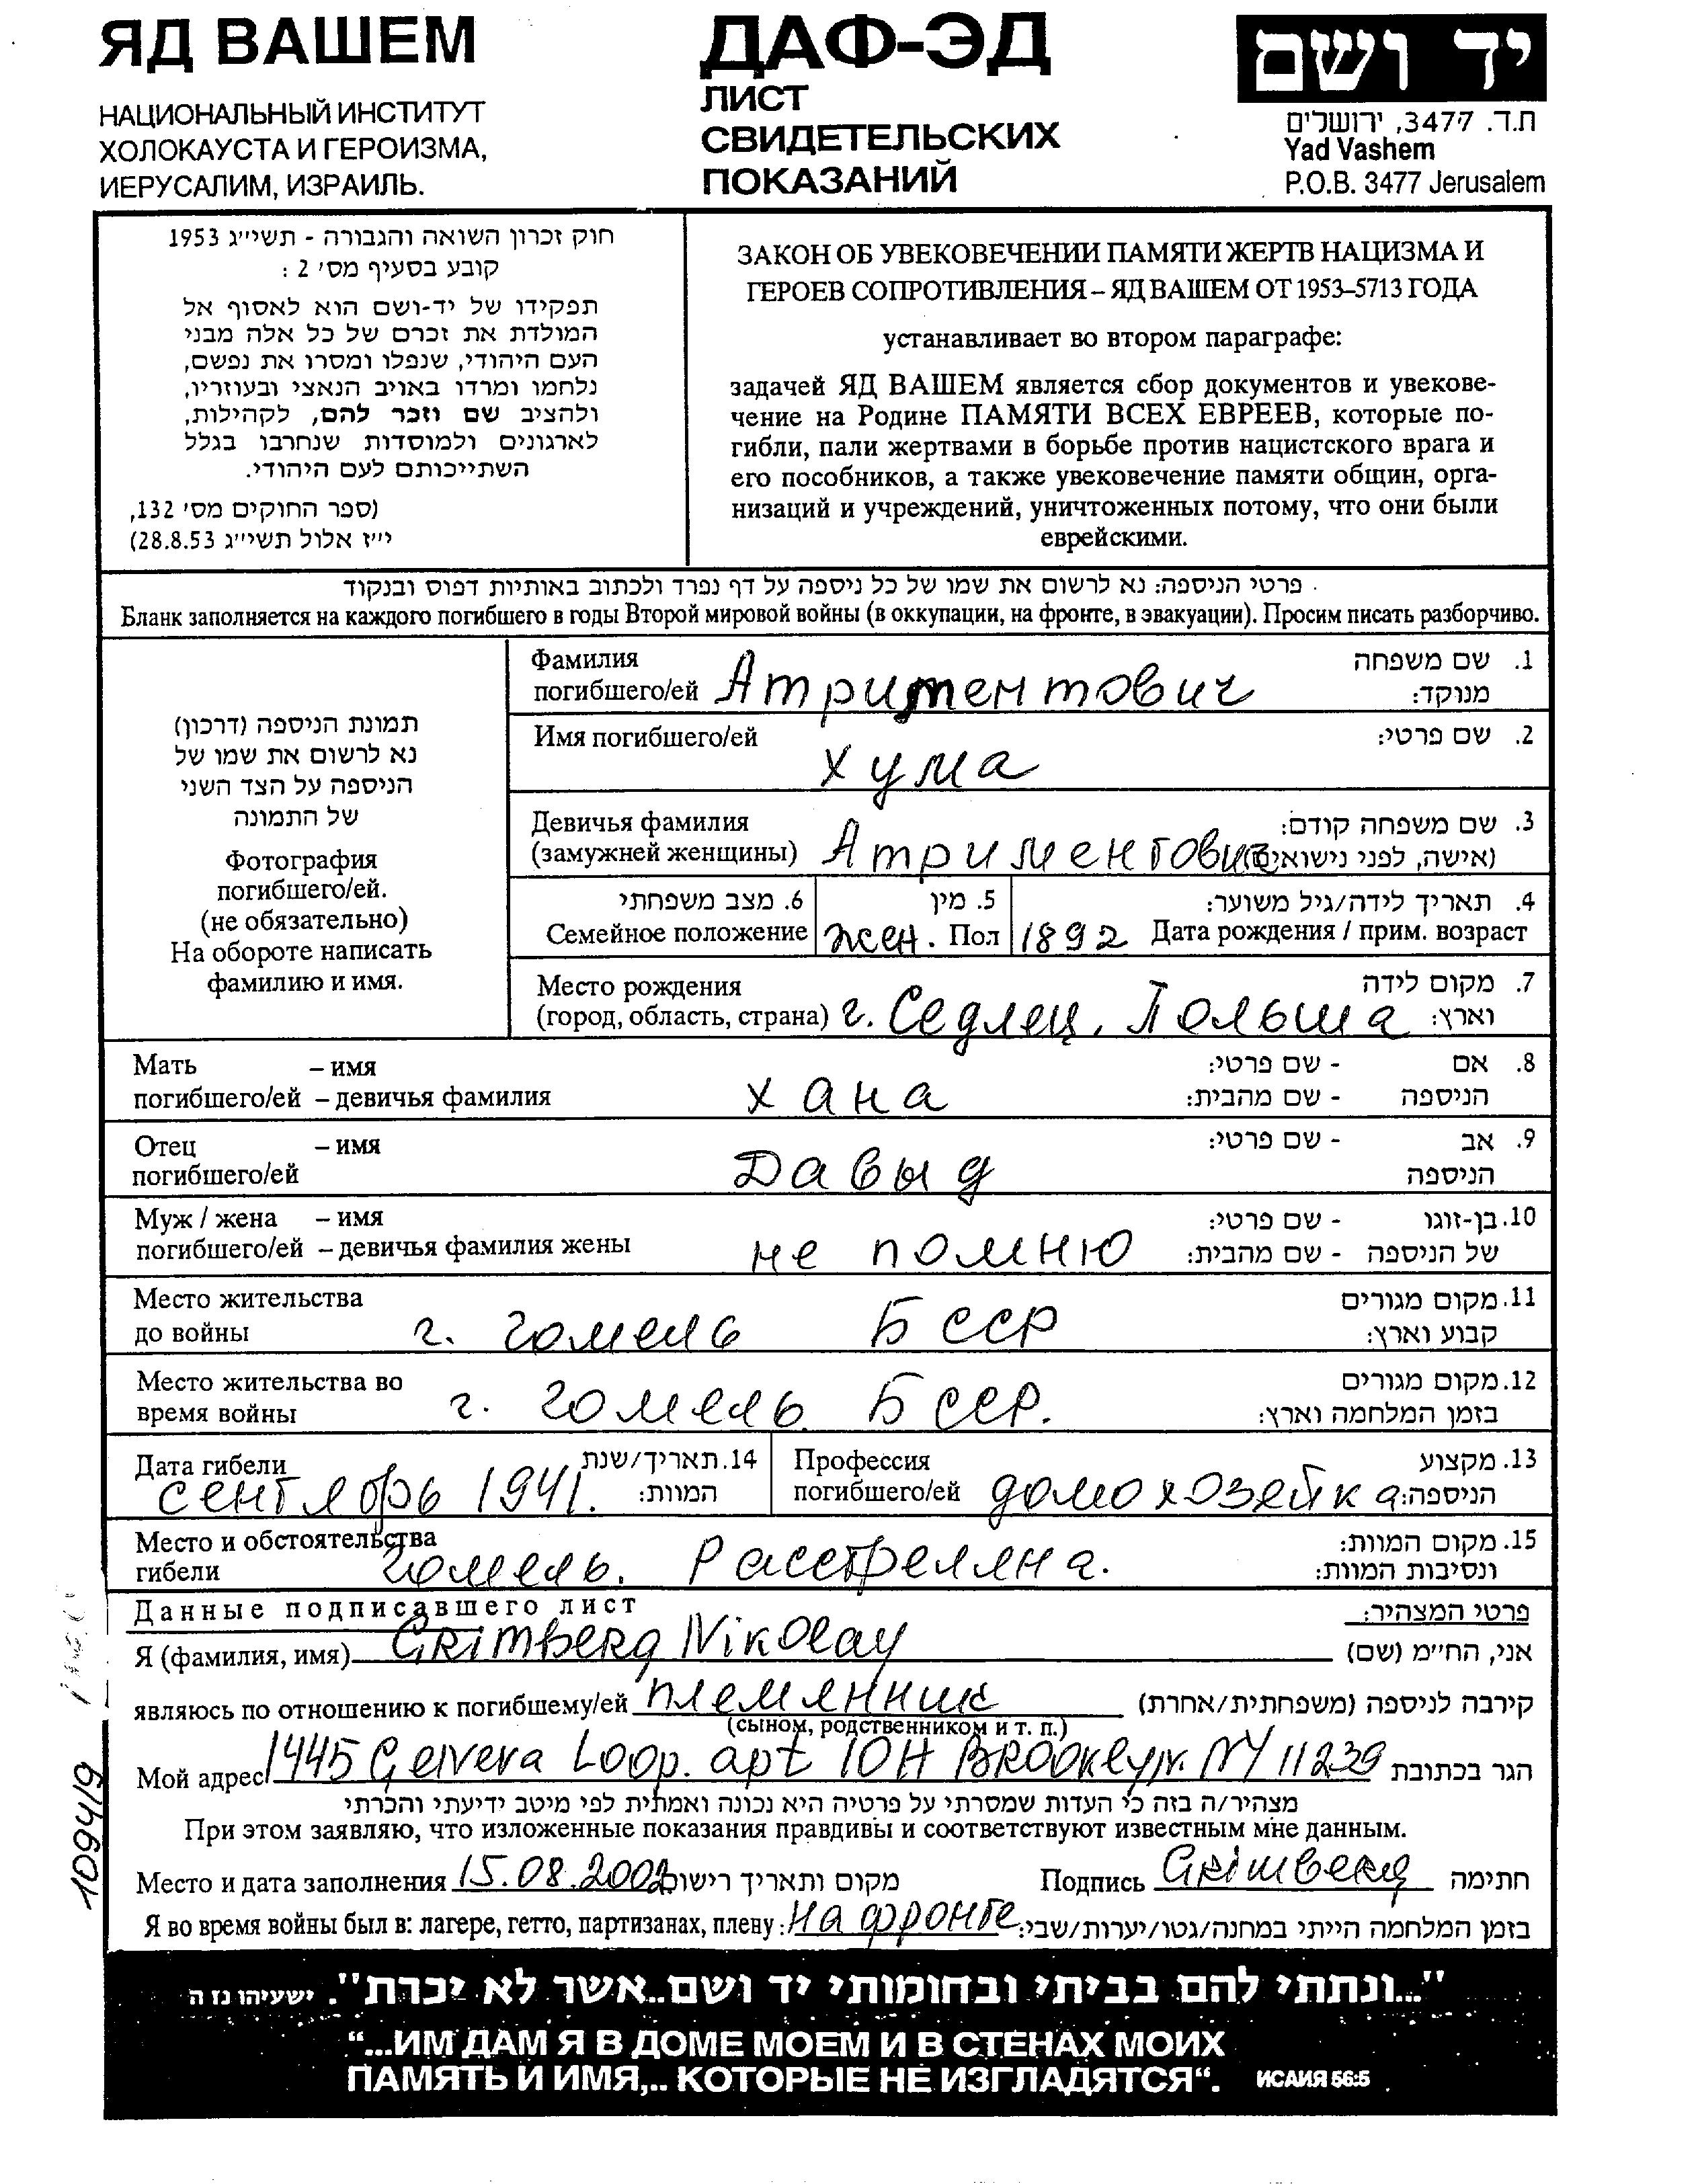 ЯД ВАШЕМ
НАЦИОНАЛЬНЫЙ ИНСТИТУТ
ХОЛОКАУСТА И ГЕРОИЗМА,
ИЕРУСАЛИМ, ИЗРАИЛЬ.
ДАФ-ЭД
ЛИСТ
СВИДЕТЕЛЬСКИХ
ПОКАЗАНИЙ
יד ושם
ת.ד. 3477, ירושלים
Yad Vashem
P.O.B. 3477 Jerusalem
חוק זכרון השואה והגבורה - תשי״ג 1953
קובע בסעיף מס׳ 2 :
תפקידו של יד-ושם הוא לאסוף אל
המולדת את זכרם של כל אלה מבני
העם היהודי, שנפלו ומסרו את נפשם,
נלחמו ומרדו באויב הנאצי ובעוזריו,
ולהציב שם וזכר להם, לקהילות,
לארגונים ולמוסדות שנחרבו בגלל
השתייכותם לעם היהודי.
(ספר החוקים מס׳ 132,
י״ז אלול תשי״ג 28.8.53)
ЗАКОН ОБ УВЕКОВЕЧЕНИИ ПАМЯТИ ЖЕРТВ НАЦИЗМА И
ГЕРОЕВ СОПРОТИВЛЕНИЯ – ЯД ВАШЕМ ОТ 1953–5713 ГОДА
устанавливает во втором параграфе:
задачей ЯД ВАШЕМ является сбор документов и увекове-
чение на Родине ПАМЯТИ ВСЕХ ЕВРЕЕВ, которые по-
гибли, пали жертвами в борьбе против нацистского врага и
его пособников, а также увековечение памяти общин, орга-
низаций и учреждений, уничтоженных потому, что они были
еврейскими.
פרטי הניספה: נא לרשום את שמו של כל ניספה על דף נפרד ולכתוב באותיות דפוס ובנקוד
Бланк заполняется на каждого погибшего в годы Второй мировой войны (в оккупации, на фронте, в эвакуации). Просим писать разборчиво.
תמונת הניספה (דרכון)
נא לרשום את שמו של
הניספה על הצד השני
של התמונה
Фотография
погибшего/ей.
(не обязательно)
На обороте написать
фамилию и имя.
Фамилия 1. שם משפחה
погибшего/ей Атриментович מנוקד:
Имя погибшего/ей 2. שם פרטי:
Хума
Девичья фамилия 3. שם משפחה קודם:
(замужней женщины) Атриментович (אישה, לפני נישואים)
6. מצב משפחתי 5. מין 4. תאריך לידה/גיל משוער:
Семейное положение жен. Пол 1892 Дата рождения / прим. возраст
Место рождения 7. מקום לידה
(город, область, страна) г. Седлец, Польша וארץ:
Мать – имя 8. אם - שם פרטי:
погибшего/ей – девичья фамилия Хана הניספה - שם מהבית:
Отец – имя 9. אב - שם פרטי:
погибшего/ей Давыд הניספה
Муж / жена – имя 10. בן-זוגו - שם פרטי:
погибшего/ей – девичья фамилия жены не помню של הניספה - שם מהבית:
Место жительства 11. מקום מגורים
до войны г. Гомель БССР קבוע וארץ:
Место жительства во 12. מקום מגורים
время войны г. Гомель БССР. בזמן המלחמה וארץ:
Дата гибели 14. תאריך/שנת Профессия 13. מקצוע
сентябрь 1941. המוות: погибшего/ей домохозейка הניספה:
Место и обстоятельства 15. מקום המוות:
гибели Гомель. Расстреляна. ונסיבות המוות:
Данные подписавшего лист פרטי המצהיר:
Я (фамилия, имя) GRimberg Nikolay אני, הח״מ (שם)
являюсь по отношению к погибшему/ей племянник קירבה לניספה (משפחתית/אחרת)
(сыном, родственником и т. п.)
Мой адрес 1445 Geneva Loop. apt 10H Brooklyn. NY 11239 הגר בכתובת
מצהיר/ה בזה כי העדות שמסרתי על פרטיה היא נכונה ואמתית לפי מיטב ידיעתי והכרתי
При этом заявляю, что изложенные показания правдивы и соответствуют известным мне данным.
Место и дата заполнения 15.08.2002 מקום ותאריך רישום Подпись GRimberg חתימה
Я во время войны был в: лагере, гетто, партизанах, плену: На фронте בזמן המלחמה הייתי במחנה/גטו/יערות/שבי:
109419
"...ונתתי להם בביתי ובחומותי יד ושם..אשר לא יכרת". ישעיהו נז ה
“...ИМ ДАМ Я В ДОМЕ МОЕМ И В СТЕНАХ МОИХ
ПАМЯТЬ И ИМЯ,.. КОТОРЫЕ НЕ ИЗГЛАДЯТСЯ“. ИСАИЯ 56:5